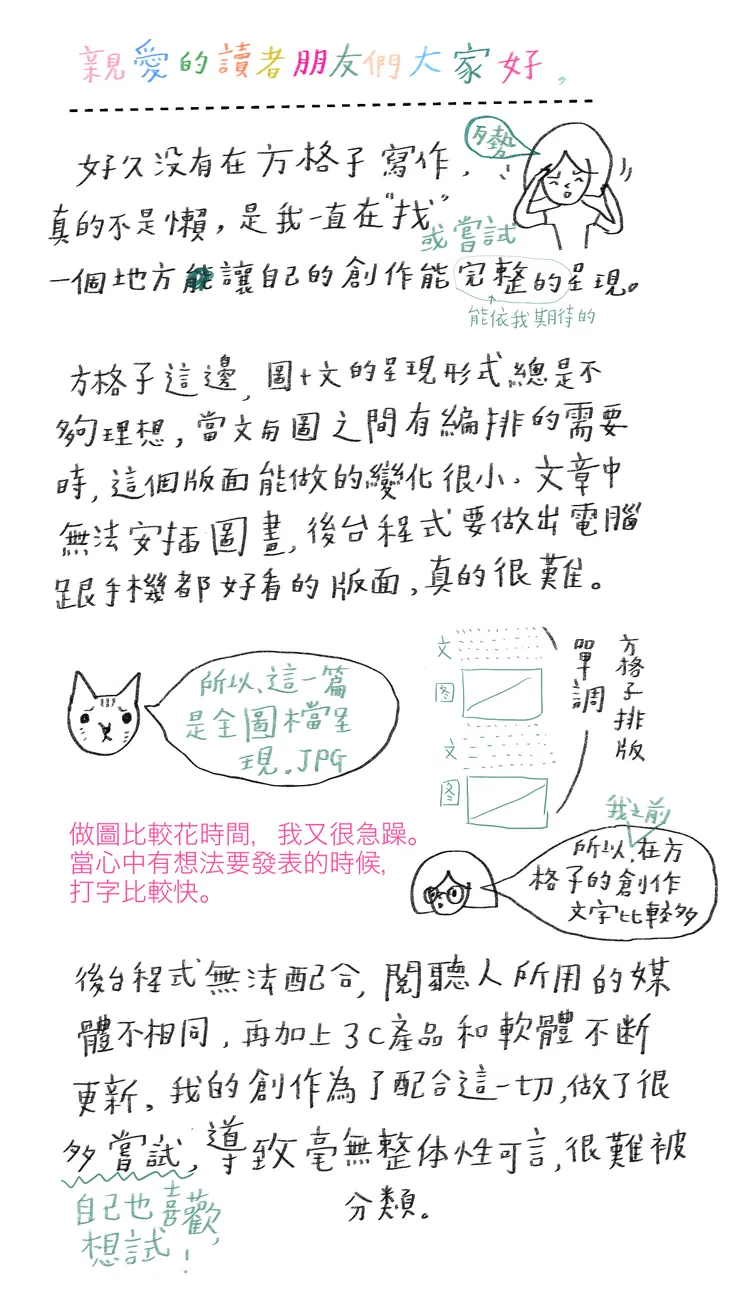 親愛的讀者朋友們大家好。
好久没有在方格子寫作，
歹勢
真的不是懶，是我一直在"找"
或嘗試
一個地方能讓自己的創作能完整的呈現。
能依我期待的
方格子這邊，圖+文的呈現形式總是不
夠理想，當文與圖之間有編排的需要
時，這個版面能做的變化很小。文章中
無法安插圖畫，後台程式要做出電腦
跟手機都好看的版面，真的很難。
所以、這一篇
是全圖檔呈
現.JPG
文
图
文
图
單調
方格子排版
做圖比較花時間，我又很急躁。
當心中有想法要發表的時候，
打字比較快。
我之前
所以，在方
格子的創作
文字比較多
後台程式無法配合，閱聽人所用的媒
體不相同，再加上3C產品和軟體不斷
更新。我的創作為了配合這一切，做了很
多嘗試，導致毫無整体性可言，很難被
分類。
自己也喜歡
想試！